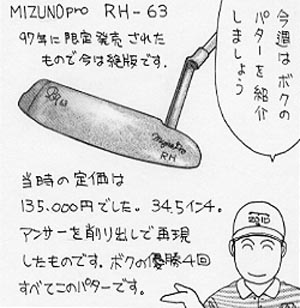 MIZUNOpro RH-63
97年に限定発売された
もので今は絶版です.
今週はボクの
パターを紹介
しましょう
Mizuno Pro
RH
当時の定価は
135.000円でした。34.5インチ。
アンサーを削り出しで再現
したものです。ボクの優勝4回
すべてこのパターです。